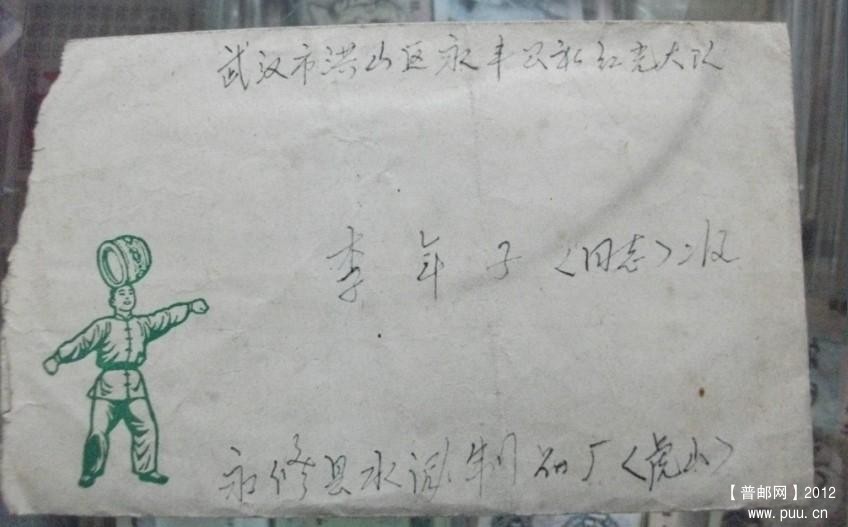 武汉市洪山区永丰公社红光大队
李年子〈同志〉收
永修县水泥制品厂〈虎山〉
【普邮网】2012
www.puu.cn